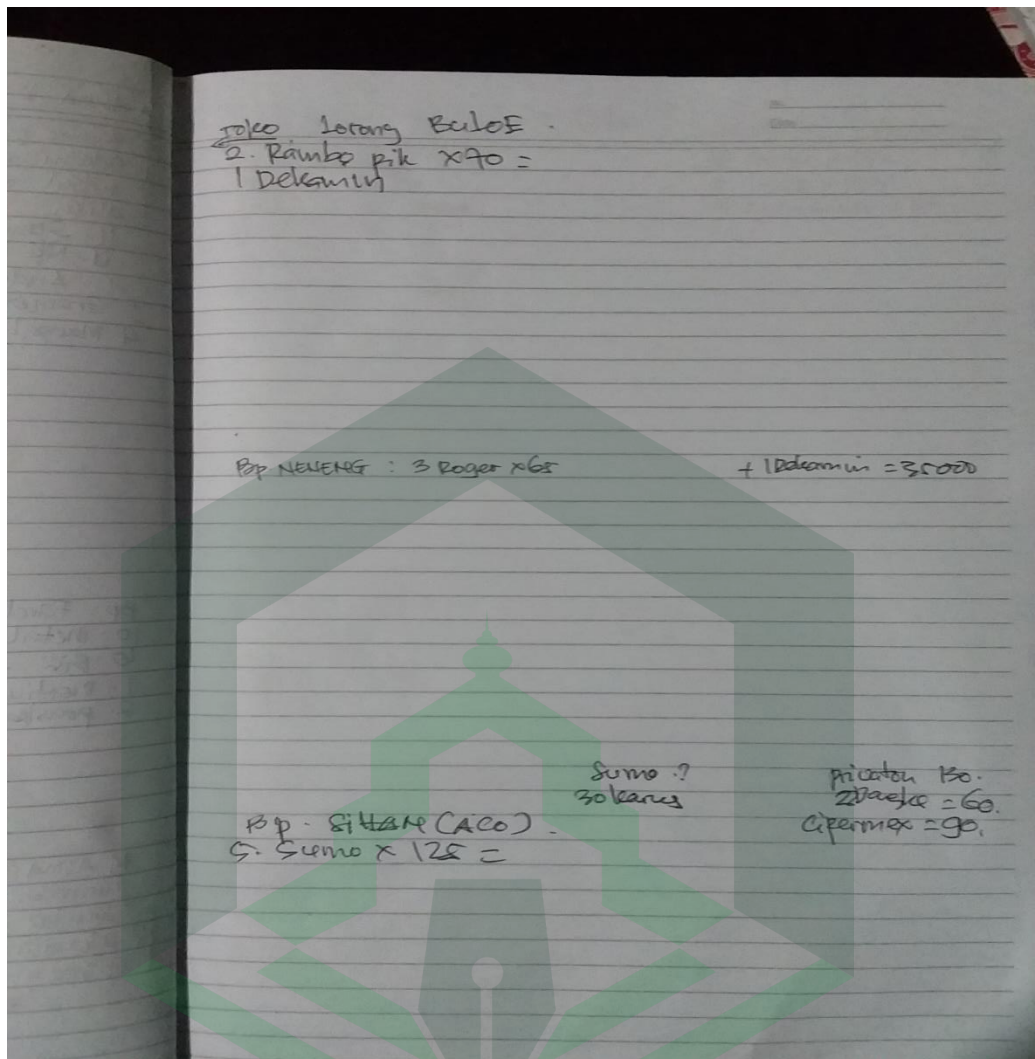 Toko Lorong BuloE.
2. Rambo pik x70 =
1 Dekamin
Bp NENENG : 3 Roger x65 + 1 Dekamin = 35000
Sumo ?
30 karus
pricaton 130.
= 60.
Cipermex = 90.
Bp. SittARE (ACO).
5. Sumo x 125 =